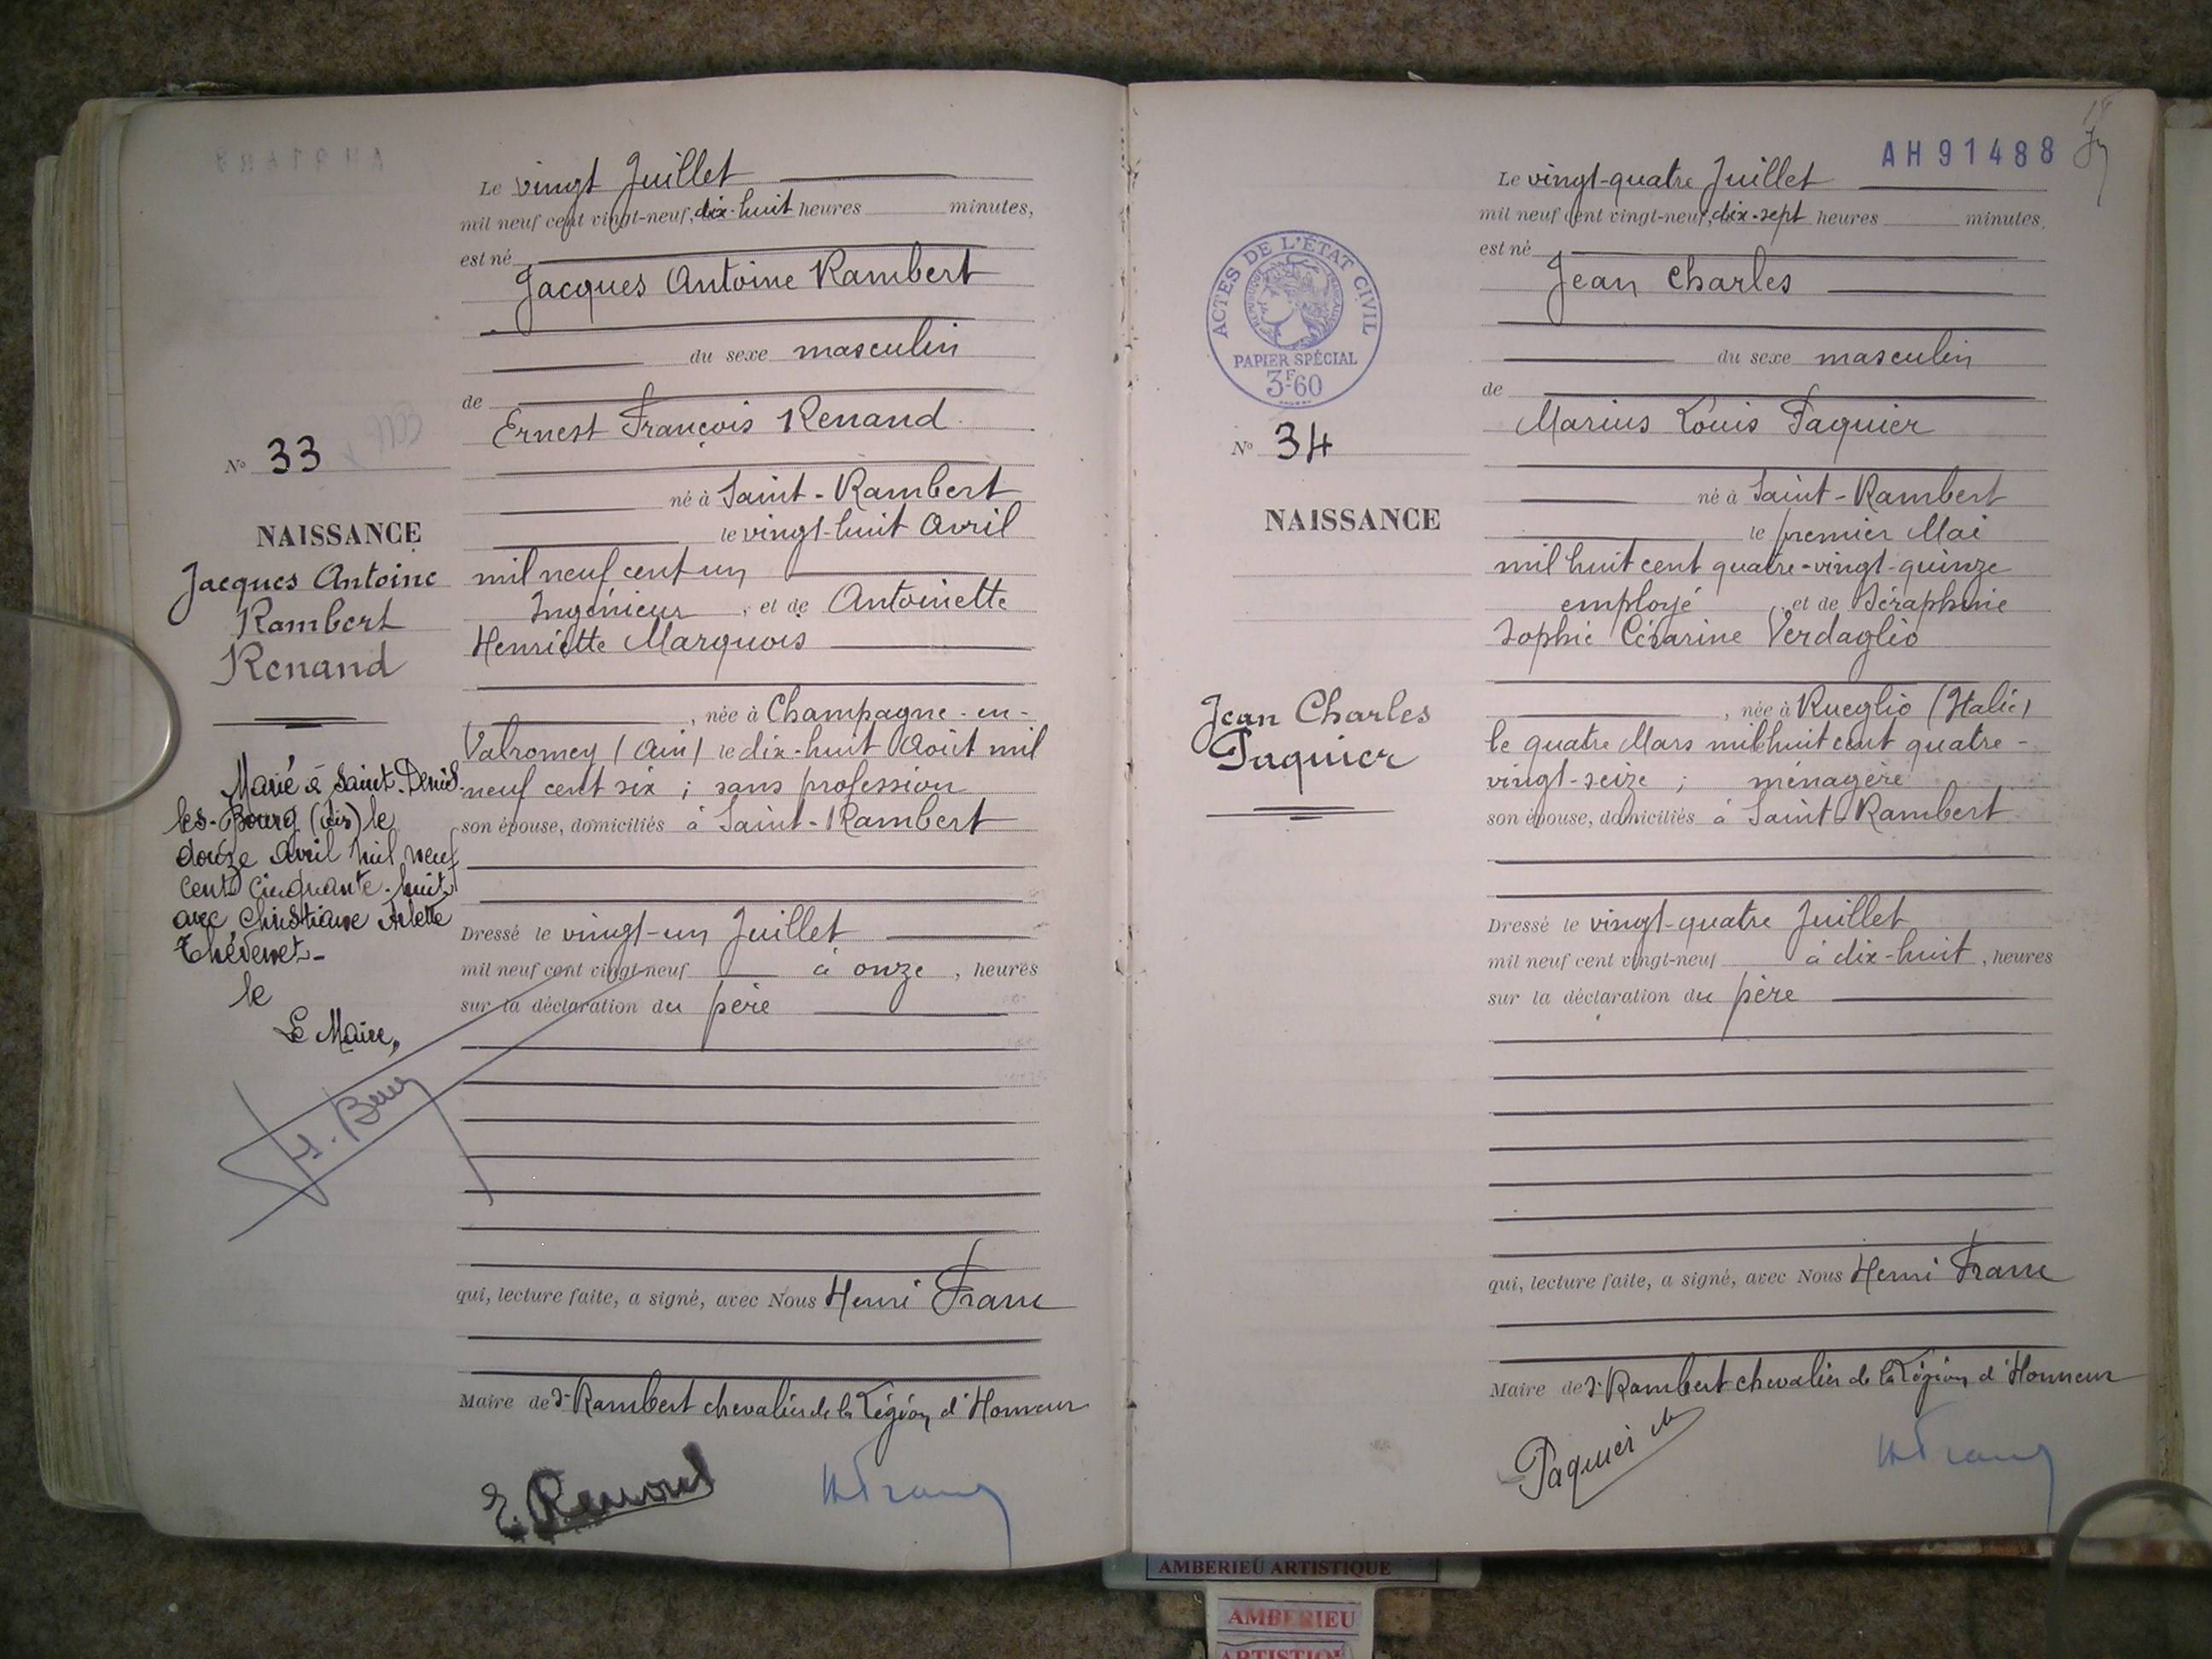 Le vingt Juillet
mil neuf cent vingt-neuf, dix-huit heures minutes,
est né
Jacques Antoine Rambert
du sexe masculin
de
Ernest François Renand
né à Saint-Rambert
le vingt-huit Avril
mil neuf cent un
Ingénieur, et de Antoinette
Henriette Marquois
, née à Champagne-en-
Valromey (Ain) le dix-huit Août mil
neuf cent six ; sans profession
son épouse, domiciliés à Saint-Rambert
Dressé le vingt-un Juillet
mil neuf cent vingt-neuf à onze, heures
sur la déclaration du père
qui, lecture faite, a signé, avec Nous Henri Franc
Maire de St Rambert chevalier de la Légion d'Honneur
E. Renand
HFranc
N° 33
NAISSANCE
Jacques Antoine
Rambert
Renand
Marié à Saint-Denis-
les-Bourg (Ain) le
douze Avril mil neuf
cent cinquante-huit
avec Christiane Arlette
Thévenet-
le
Le Maire,
AH91488
Le vingt-quatre Juillet
mil neuf cent vingt-neuf, dix-sept heures minutes.
est né
Jean Charles
du sexe masculin
de
Marius Louis Paquier
né à Saint-Rambert
le premier Mai
mil huit cent quatre-vingt-quinze
employé, et de Séraphine
Sophie Césarine Verdaglio
, née à Rueglio (Italie)
le quatre Mars mil huit cent quatre-
vingt-seize ; ménagère
son épouse, domiciliés à Saint-Rambert
Dressé le vingt-quatre Juillet
mil neuf cent vingt-neuf à dix-huit, heures
sur la déclaration du père
qui, lecture faite, a signé, avec Nous Henri Franc
Maire de St Rambert chevalier de la Légion d'Honneur
Paquier
HFranc
ACTES DE L'ÉTAT CIVIL
RÉPUBLIQUE FRANÇAISE
PAPIER SPÉCIAL
3F60
N° 34
NAISSANCE
Jean Charles
Paquier
AMBERIEU ARTISTIQUE
AMBERIEU
ARTISTIQUE